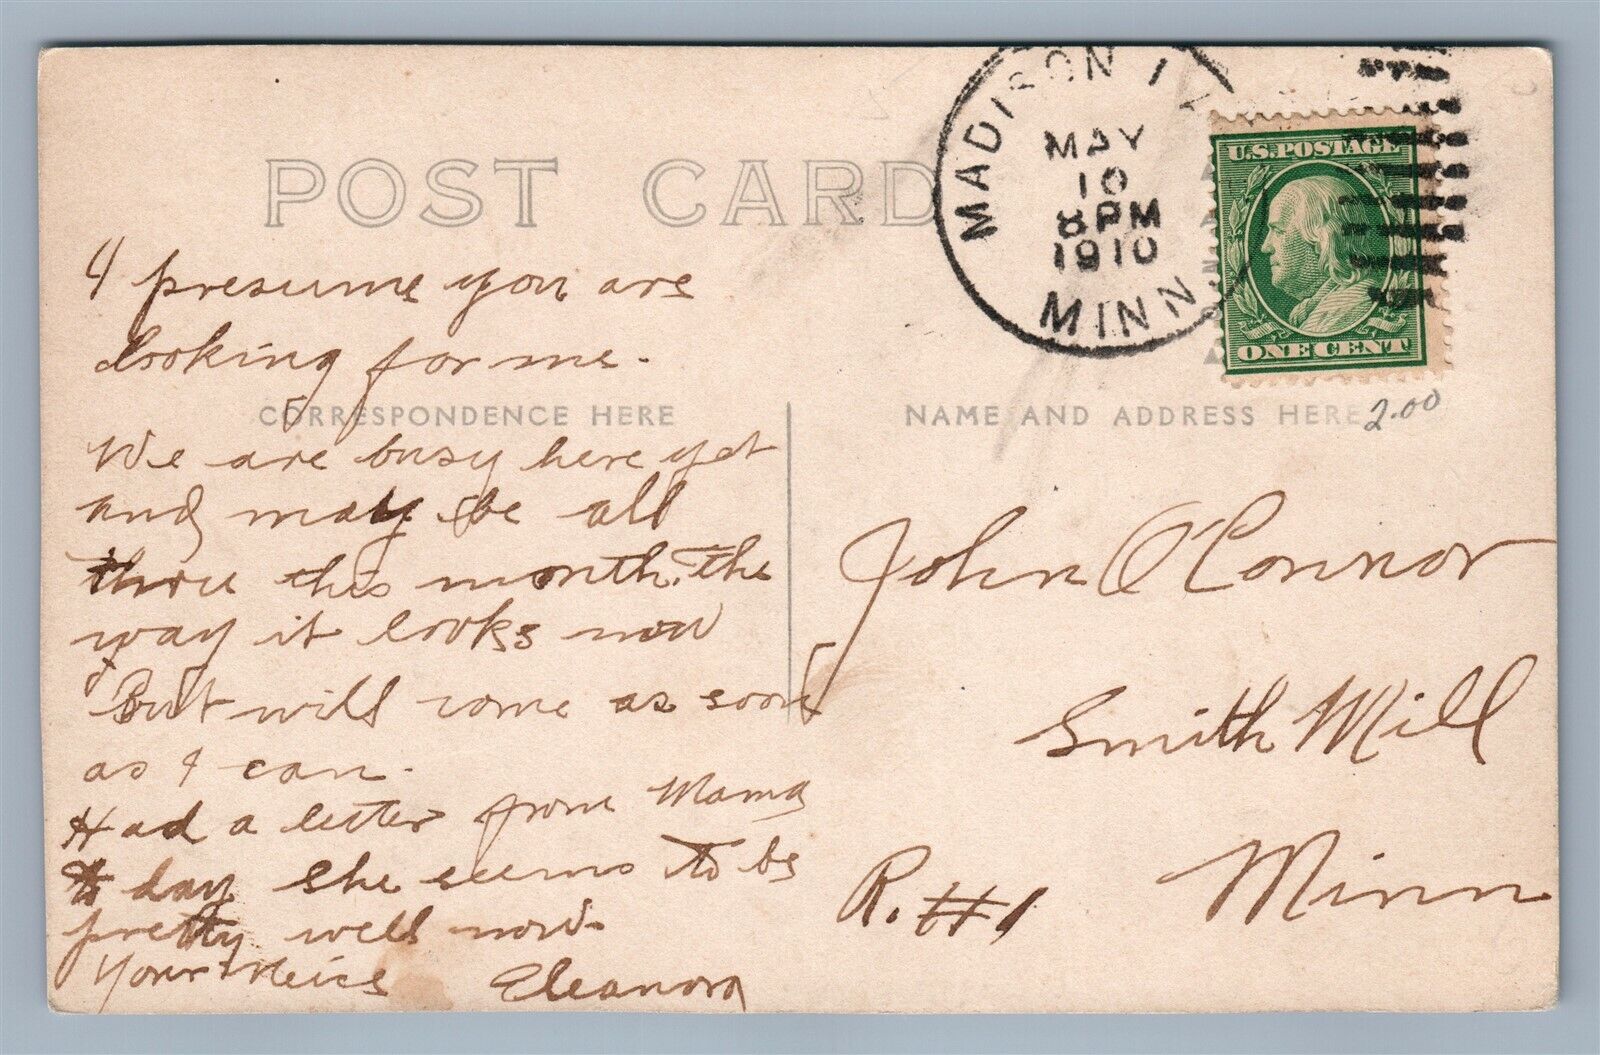 POST CARD
MADISON
MAY
10
8 PM
1910
MINN
U.S. POSTAGE
ONE CENT
I presume you are
looking for me.
CORRESPONDENCE HERE
We are busy here yet
and may be all
thru this month. The
way it looks now
But will come as soon
as I can.
Had a letter from Mama
to day she seems to be
pretty well now.
Your Neice Eleanora
NAME AND ADDRESS HERE
2.00
John O'Connor
Smith Mill
Minn
R. #1